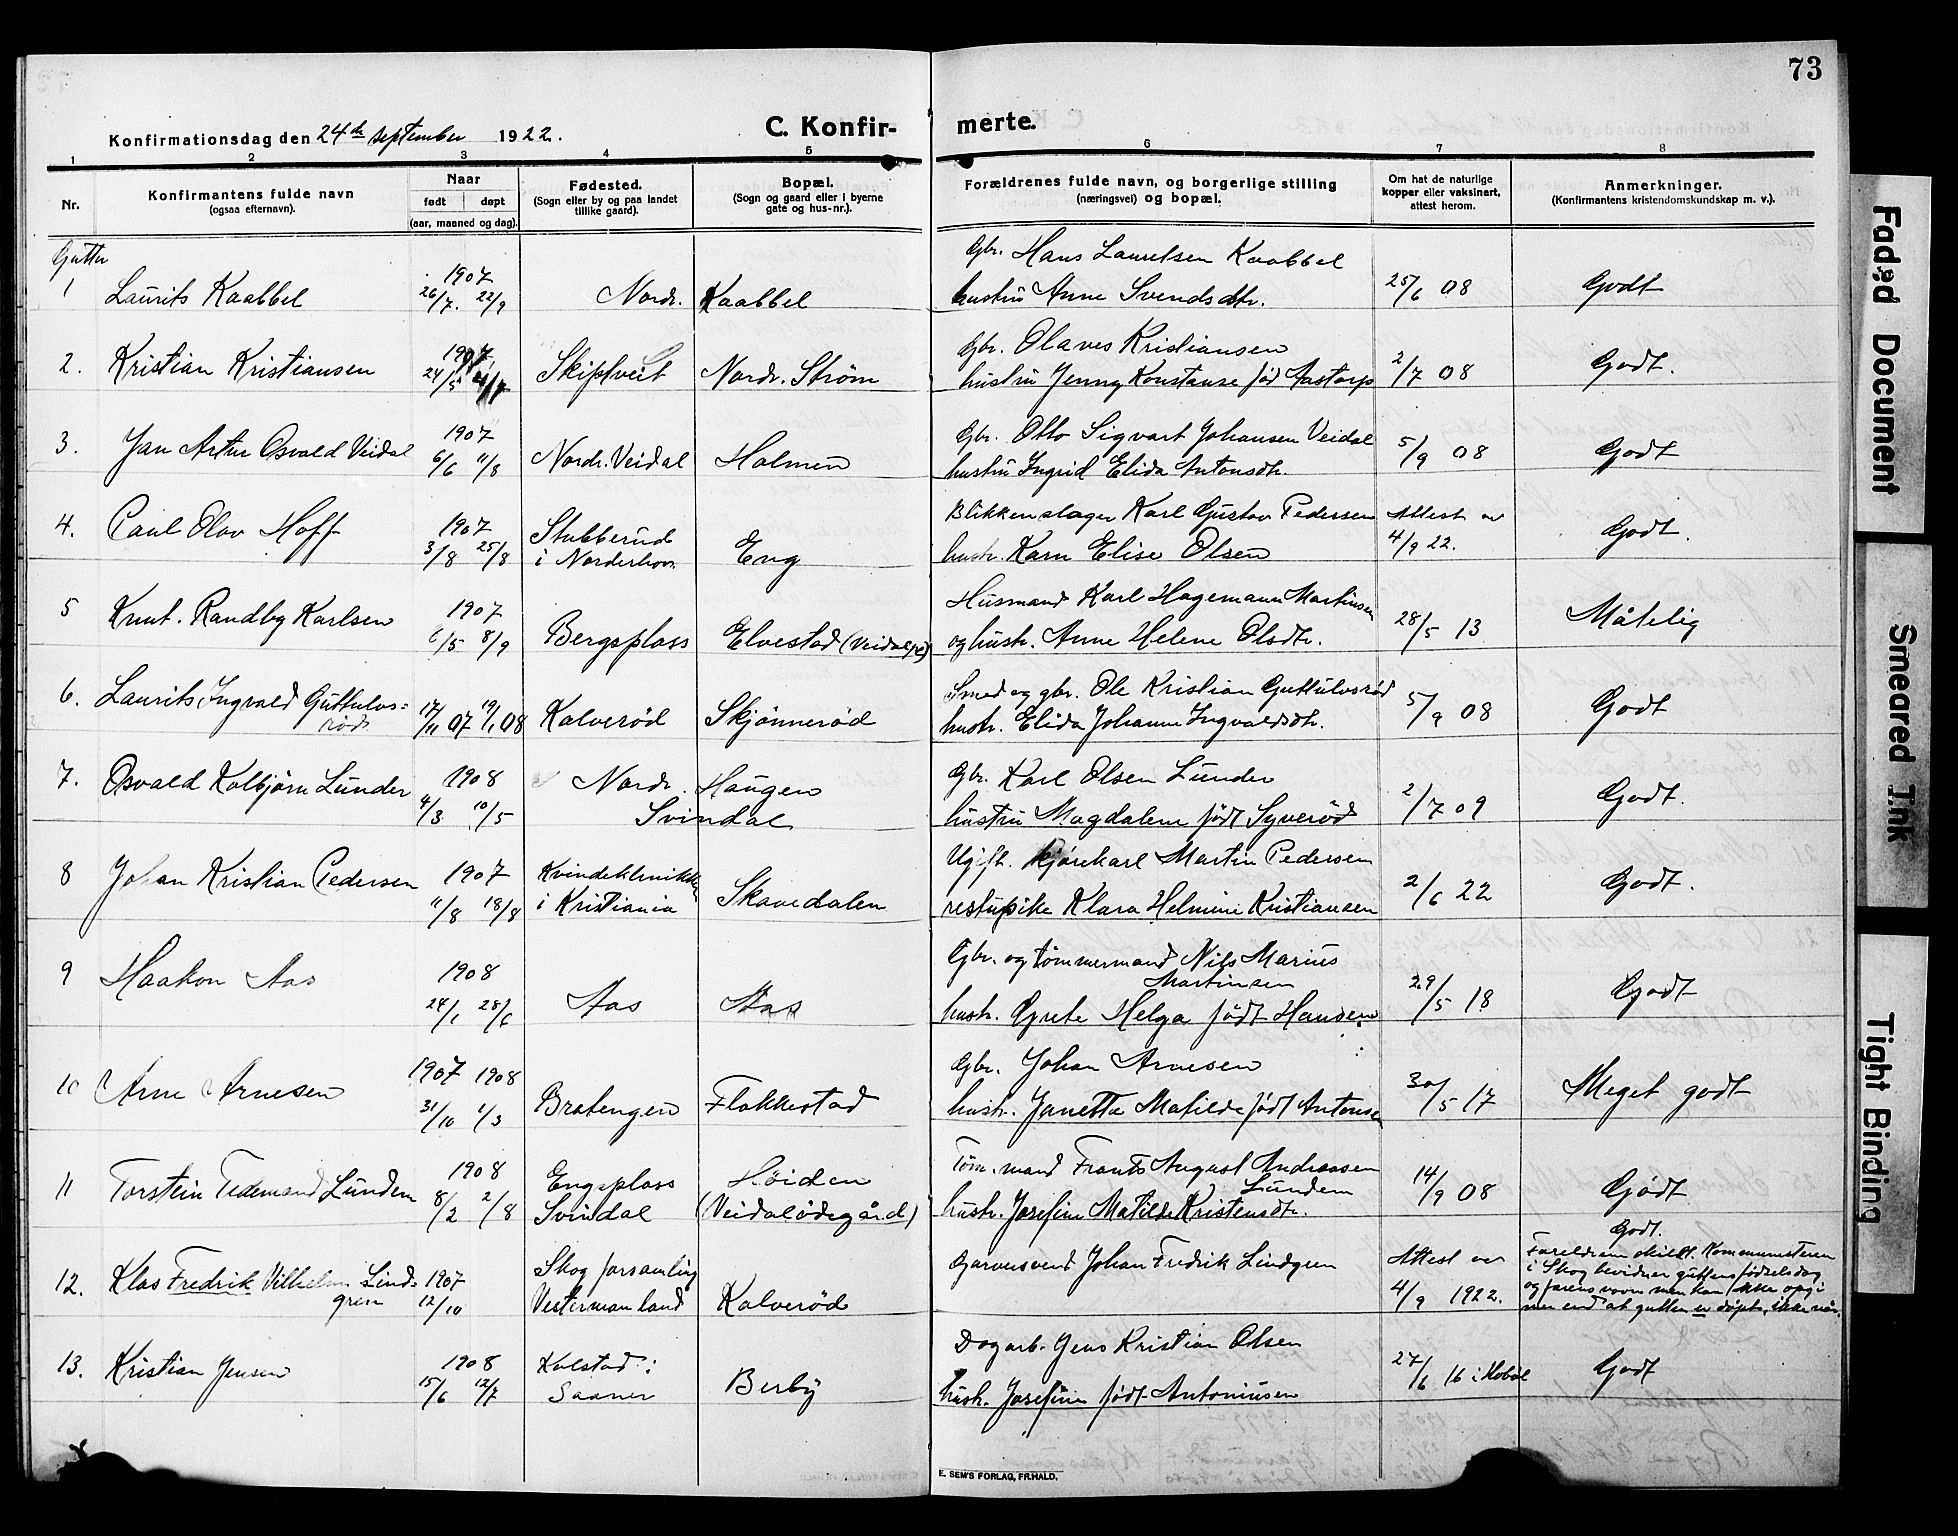 73
Konfirmationsdag den 24de september 1922.
C. Konfirmerte.
1 2 3 4 5 6 7 8
Nr.
Konfirmantens fulde navn
(ogsaa efternavn).
Naar
født døpt
(aar, maaned og dag).
Fødested.
(Sogn eller by og paa landet
tillike gaard).
Bopæl.
(Sogn og gaard eller i byerne
gate og hus-nr.).
Forældrenes fulde navn, og borgerlige stilling
(næringsvei) og bopæl.
Om hat de naturlige
kopper eller vaksinert,
attest herom.
Anmerkninger.
(Konfirmantens kristendomskundskap m. v.).
Gutter
1 Laurits Kaabbel 1907 26/7. 22/9 Nordr. Kaabbel
Gbr. Hans Lauritsen Kaabbel
hustru Anne Svendsdtr. 25/6 08 Godt
2. Kristian Kristiansen 1907 24/5 Skiptveit Nordr. Strøm
Gbr. Olaves Kristiansen
hustru Jenny Konstanse fød Aastorp 2/7 08 Godt.
3. Jan Artur Osvald Veidal 1907 6/6 11/8 Nordr. Veidal Holmen
Gbr. Otto Sigvart Johansen Veidal
hustru Ingrid Elida Antonsdtr. 5/9 08 Godt
4. Paul Olav Hoff 1907 3/8 25/8 Stubberud
i Norderhov. Eng
Blikkenslager Karl Gustav Pedersen
hustr. Karn Elise Olsen Attest av
4/9 22. Godt.
5 Knut. Randby Karlsen 1907 6/5 8/9 Bergsplass Elvestad (Veidalpl)
Husmand Karl Hagemann Martinsen
og hustr. Anne Helene Olsdtr. 28/5 13 Måtelig
6. Laurits Ingvald Guttulvs=
rød 17/11 07 19/1 08 Kalverød Skjønnerød
Smed og gbr. Ole Kristian Guttulvsrød
hustr. Elida Johanne Ingvaldsdtr. 5/9 08 Godt
7. Osvald Kolbjørn Lunder 1908 4/3 10/5 Nordr. Haugen
Svindal
Gbr. Karl Olsen Lunder
hustru Magdalene født Syverød 2/7 09 Godt.
8 Johan Kristian Pedersen 1907 11/8 18/8 Kvindeklinikken
i Kristiania Skavedalen
Ugift. kjørekarl Martin Pedersen
restupike Klara Helmine Kristiansen 2/6 22 Godt.
9 Haakon Aas 1908 24/1 28/6 Aas Aas
Gbr. og tømmermand Nils Marius
Martinsen
hustr. Grete Helga født Hansen 29/5 18 Godt
10 Arne Arnesen 1907 1908 31/10 1/3 Bratengen Flakkestad
Gbr. Johan Arnesen
hustr. Janetta Matilde født Antonsen 30/5 17 Meget godt
11 Torstein Tidemand Lundem 1908 8/2 2/8 Engsplass
Svindal Høiden
(Veidalødegård)
Tøm. mand Frants August Andreasen
Lundem
hustr. Josefine Matilde Kristensdtr. 14/9 08 Godt
12. Klas Fredrik Vilhelm Lind-
gren 1907 12/10 Skog forsamling
Vestermanland Kalverød
Garversvend Johan Fredrik Lindgren Attest av
4/9 1922. Godt.
Foreldrene skillt. Kommunisteren
i Skog bevidner guttens fødselsdag
og farens navn men kan ikke opgi
mer end at gutten er døpt, ikke når.
13. Kristian Jensen 1908 15/6 12/7 Kolstad i
Saaner Berby
Dagarb. Jens Kristian Olsen
hustr. Josefine født Antoniusen 27/6 16 i Hobøl Godt
E. SEM'S FORLAG, FR.HALD.
Faded Document
Smeared Ink
Tight Binding